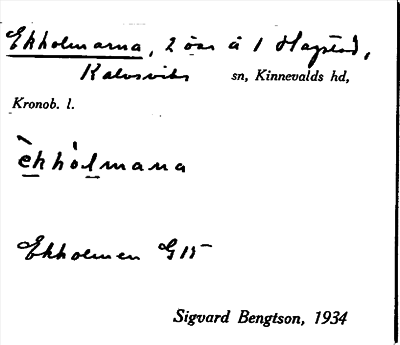 Ekholmarna, 2 öar å 1 Hagstad,
Kalvsviks sn, Kinnevalds hd,
Kronob. l.
èkhòlmana
Ekholmen G15
Sigvard Bengtson, 1934